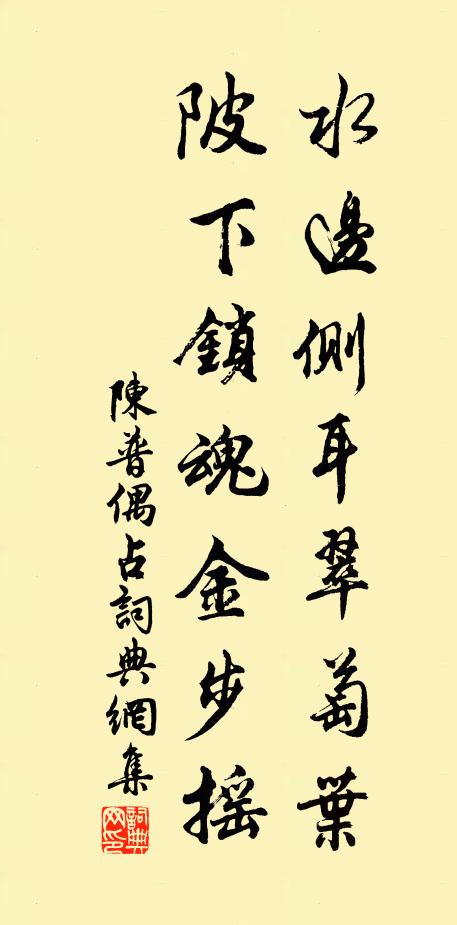 水邊側耳翠萄葉
陂下鎖魂金步搖
陳普偶占詞典網集
詞典網印